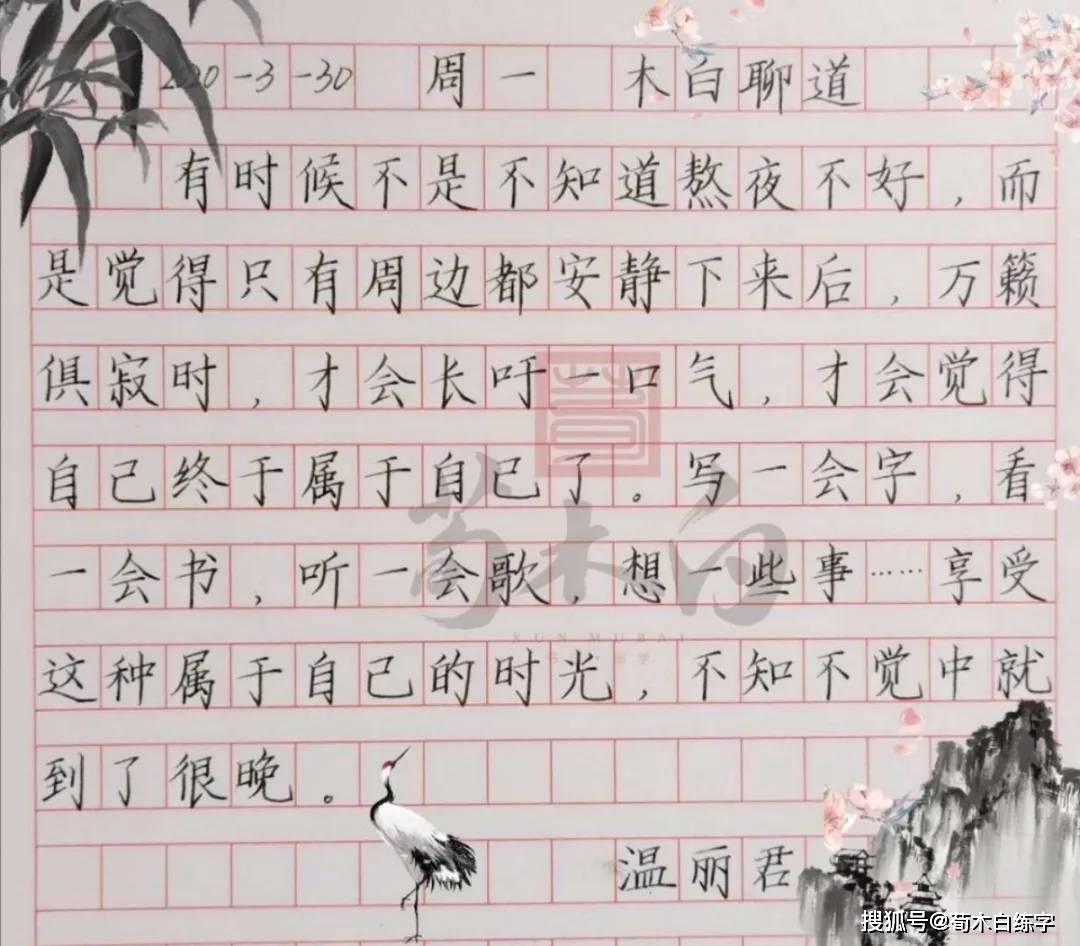 2020-3-30 周一 木白聊道
有时候不是不知道熬夜不好，而
是觉得只有周边都安静下来后，万籁
俱寂时，才会长吁一口气，才会觉得
自己终于属于自己了。写一会字，看
一会书，听一会歌，想一些事……享受
这种属于自己的时光，不知不觉中就
到了很晚。
温丽君
荀木白
XUN MUBAI
搜狐号@荀木白练字